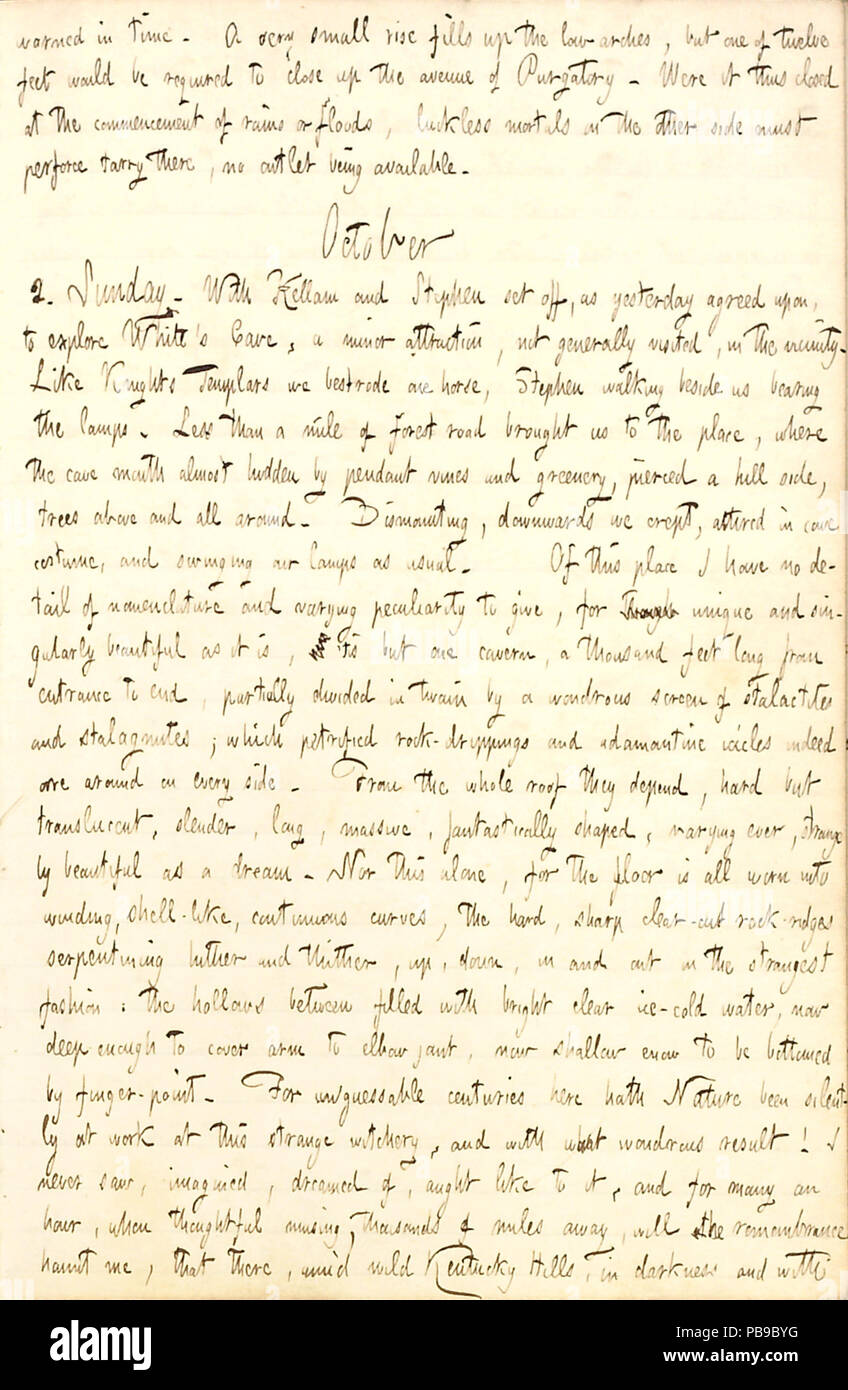 warned in time. A very small rise fills up the low arches, but one of twelve
feet would be required to close up the avenue of Purgatory. Were it thus closed
at the commencement of rains or floods, luckless mortals on the other side must
perforce tarry there, no outlet being available.
October
2. Sunday. With Kellam and Stephen set off, as yesterday agreed upon,
to explore White's Cave, a minor attraction, not generally visited, in the vicinity.
Like Knights Templars we bestrode one horse, Stephen walking beside us bearing
the lamps. Less than a mile of forest road brought us to the place, where
the cave mouth almost hidden by pendant vines and greenery, pierced a hill side,
trees above and all around. Dismounting, downwards we crept, attired in cave
costume, and swinging our lamps as usual. Of this place I have no de-
tail of nomenclature and varying peculiarity to give, for though unique and sin-
gularly beautiful as it is, 'tis but one cavern, a thousand feet long from
entrance to end, partially divided in twain by a wondrous screen of stalactites
and stalagmites; which petrified rock-drippings and adamantine icicles indeed
are around on every side. From the whole roof they depend, hard but
translucent, slender, long, massive, fantastically shaped, varying ever, strange
ly beautiful as a dream. Nor this alone, for the floor is all worn into
winding, shell-like, continuous curves, the hard, sharp clear-cut rock-ridges
serpentining hither and thither, up, down, in and out in the strangest
fashion: the hollows between filled with bright clear ice-cold water, now
deep enough to cover arm to elbow joint, now shallow enow to be bottomed
by finger-point. For unguessable centuries here hath Nature been silent-
ly at work at this strange witchery, and with what wondrous result! I
never saw, imagined, dreamed of, aught like to it, and for many an
hour, when thoughtful musing, thousands of miles away, will the remembrance
haunt me, that there, amid wild Kentucky Hills, in darkness and with
alamy
alamy stock photo
PB9BYG
www.alamy.com